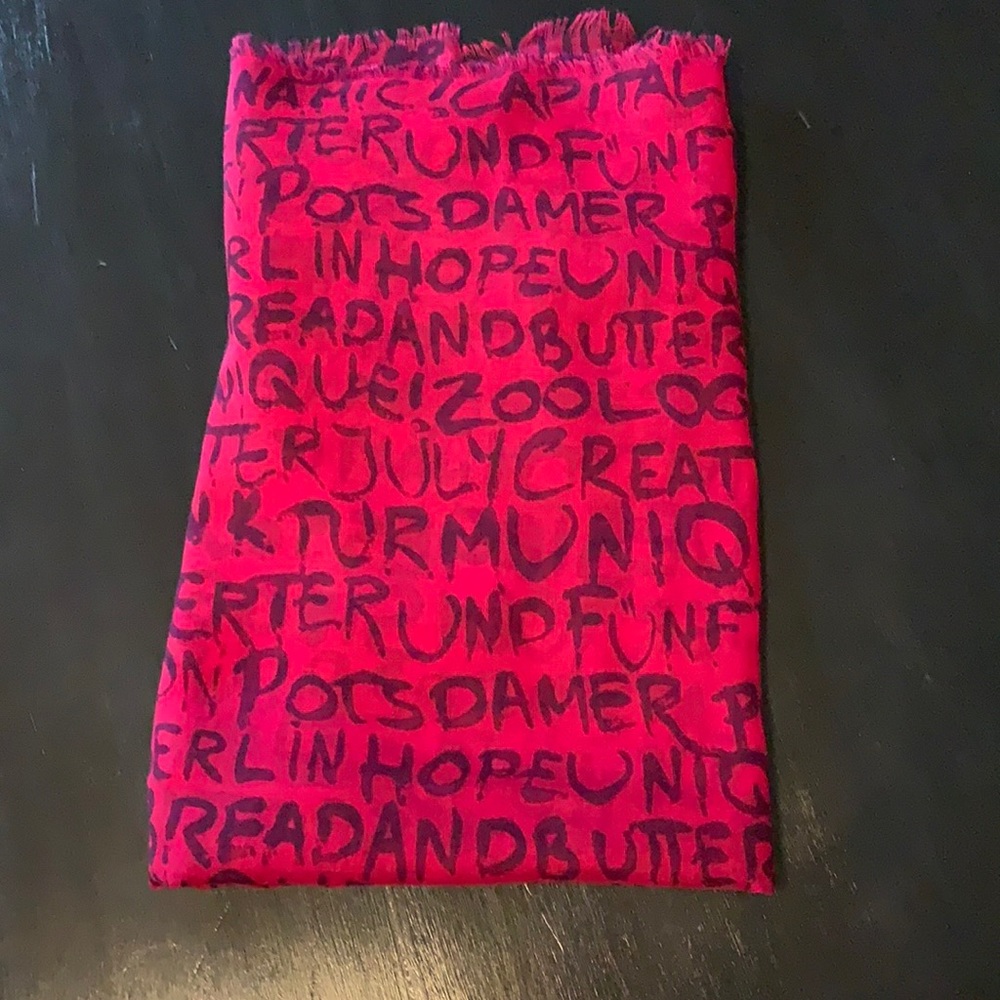 NAMIC!CAPITAL
ERTERUNDFÜNF
POTSDAMER P
RLINHOPEUNIQ
READANDBUTTER
NIQUE!ZOOLOG
TERJULYCREAT
NKTURMUNIQ
ERTERUNDFÜNF
ON POTSDAMER P
ERLINHOPEUNIQ
READANDBUTTER